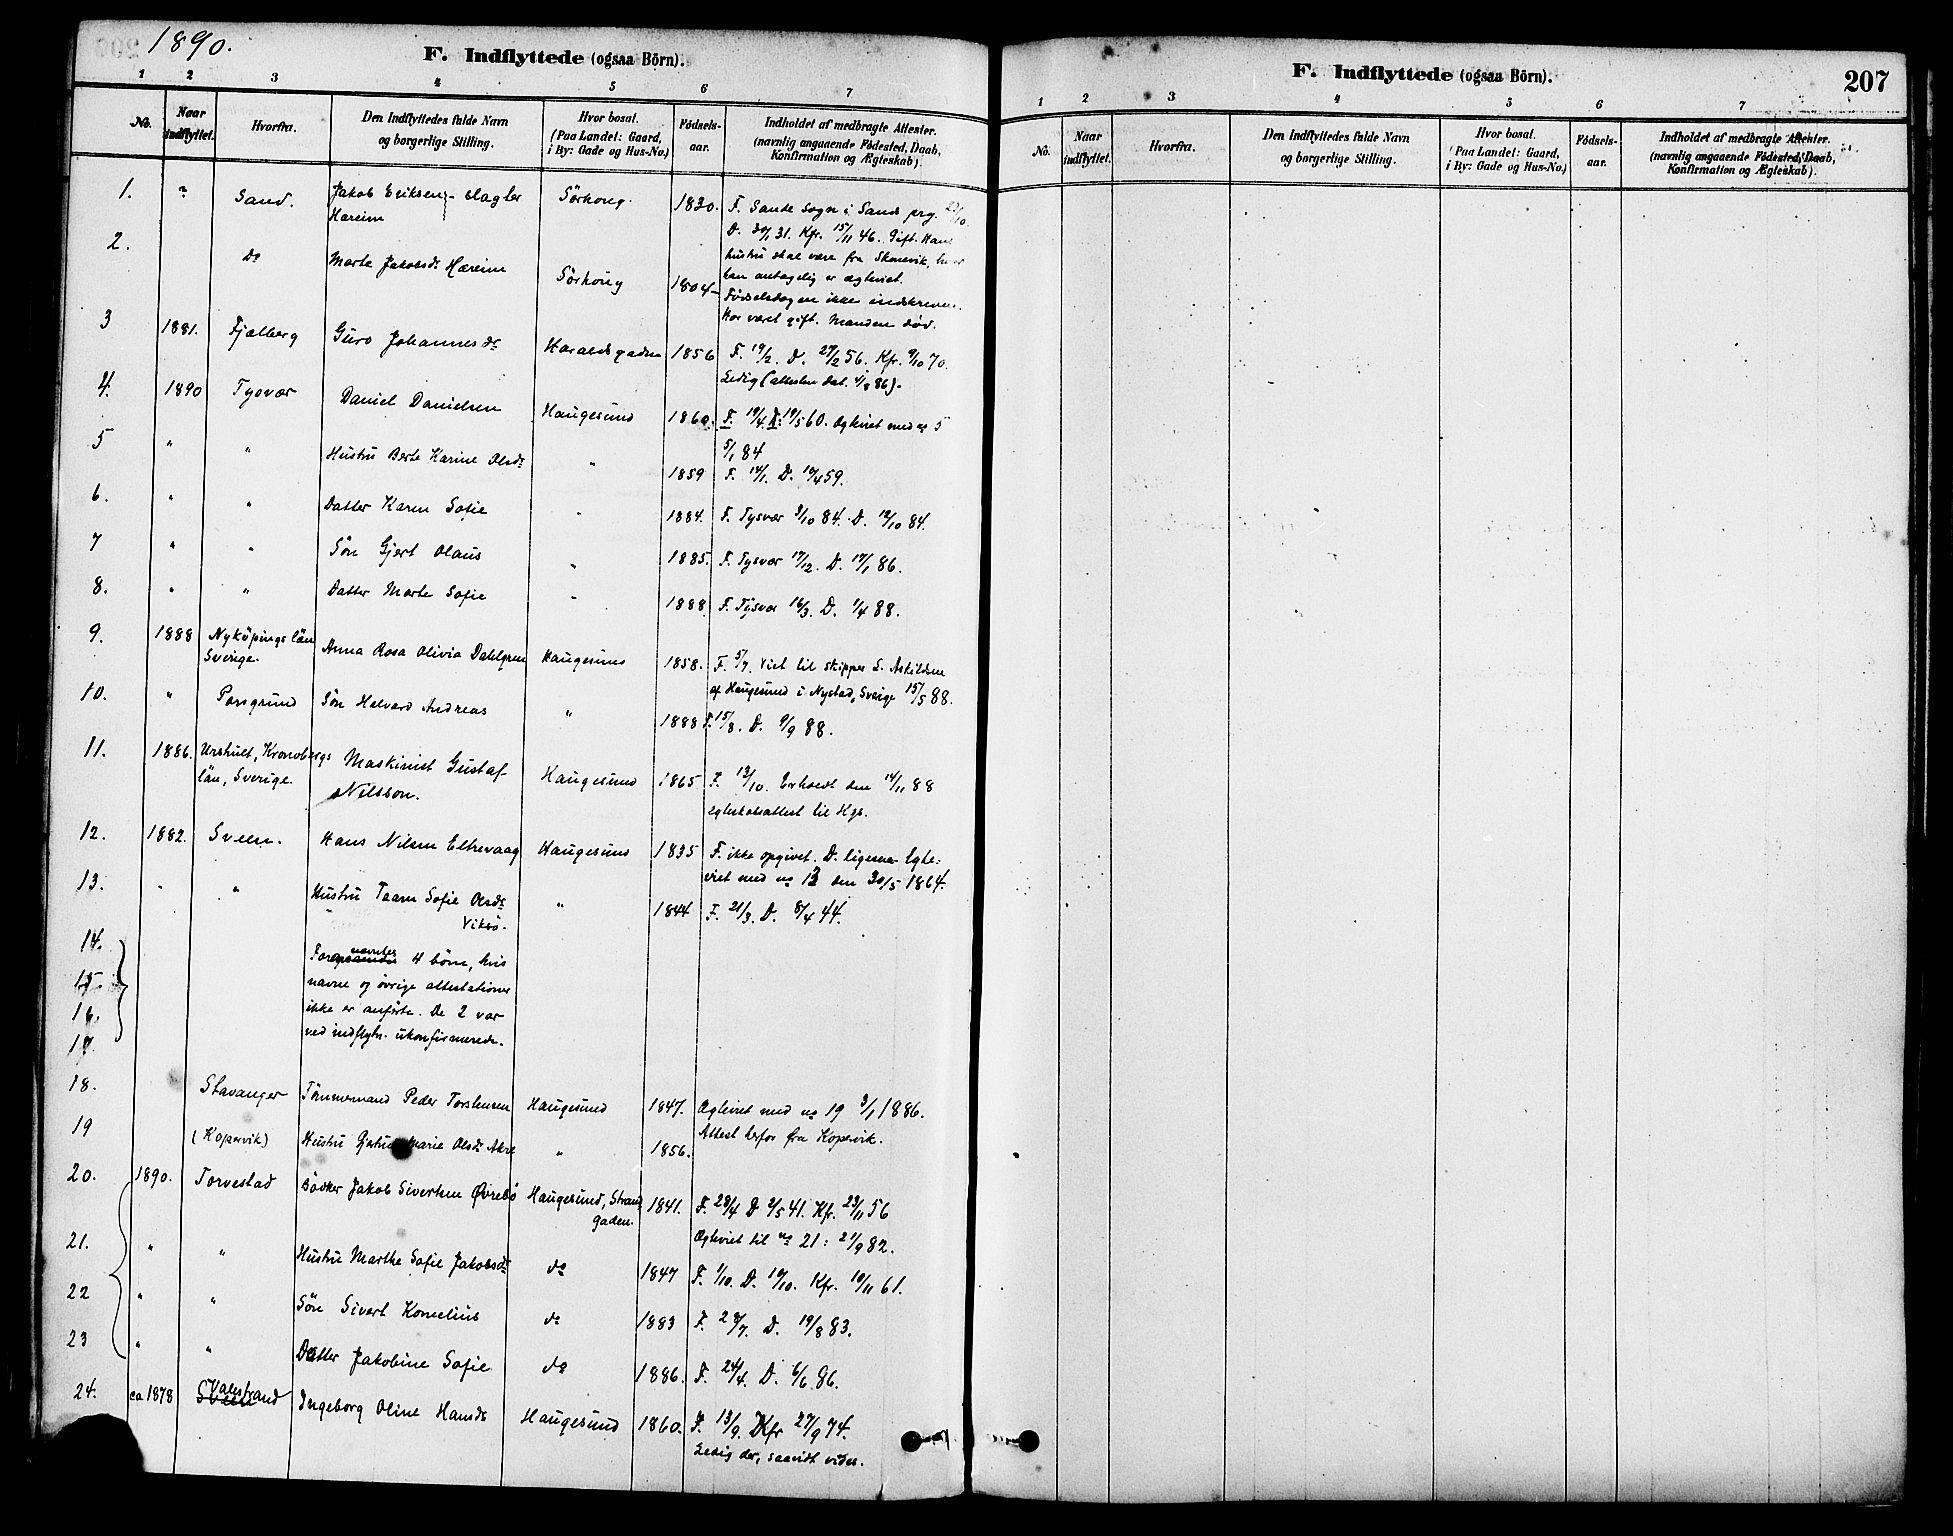 1890.
F. Indflyttede (ogsaa Börn).
1 2 3 4 5 6 7
No.
Naar indflyttet.
Hvorfra.
Den Indflyttedes fulde Navn og borgerlige Stilling.
Hvor bosat. (Paa Landet: Gaard, i By: Gade og Hus-No.)
Födsels-aar.
Indholdet af medbragte Attester. (navnlig angaaende Födested, Daab, Konfirmation og Ægteskab).
1. Sand. Jakob Eriksen, slagter Sörhoug. 1830. F. Sande Sogn i Sands prg. 22/10.
Hareim D. 30/1 31. Kfr. 15/11 46. Gift. Hans
hustru skal være fra Skonevik, hvor
han antagelig er ægteviet.
2. Do Marte Jakobsdr Hæreim Sörhoug 1804 Födselsdagen ikke indskreven.
Har været gift. Manden död.
3 1881. Fjælberg Guro Johannesdr Haraldsgaden 1856 F. 19/2. D. 27/2 56. Kfr. 9/10 70.
Ledig (attesten dat. 4/8 86).
4. 1890 Tysvær Daniel Danielsen Haugesund 1860. F. 19/4. D. 19/5 60. Ægteviet med no 5
5/1 84
5 " " Hustru Berte Karine Olsdr " 1859 F. 14/1. D. 10/4 59.
6. " " Datter Karen Sofie " 1884. F. Tysvær 3/10 84. D. 12/10 84.
7 " " Sön Gjert Olaus " 1885. F. Tysvær 17/12. D. 17/1 86.
8. " " Datter Marte Sofie " 1888. F. Tysvær 16/3. D. 1/4 88.
9. 1888 Nyköpings län Sverige. Anna Rosa Olivia Dahlgren Haugesund 1858. F. 5/7. Viet til skipper L. Askildsen
af Haugesund i Nystad, Sverige 15/5 88.
10. " Porsgrund Sön Halvard Andreas " 1888 F. 15/8. D. 9/9 88.
11. 1886. Urshult, Kronobergs län, Sverige. Maskinist Gustaf Nilsson. Haugesund 1865 F. 12/10. Erholdt den 14/11 88
egteskabsattest til Hgs.
12. 1882. Sveen. Hans Nilsen Eltrevaag Haugesund 1835 F. ikke opgivet. D. ligesaa. Egte-
viet med no 13 den 30/5 1864.
13. " " Hustru Taaru Sofie Olsdr Viksö. " 1844 F. 21/3. D. 8/4 44.
14.
15.
16.
17.
Forannævntes 4 börn, hvis
navne og övrige attestationer
ikke er anförte. De 2 var
ved indflytn. ukonfirmerede.
18. Stavanger Tömmermand Peder Torstensen Haugesund 1847. Ægteviet med no 19 3/1 1886.
Attest herfor fra Kopervik.
19 (Kopervik) Hustru Marie Olsdr Akre " 1856.
20. 1890. Torvestad Bödker Jakob Sivertsen Øvrebö Haugesund, Strandgaden. 1841. F. 23/4 D 2/5 41. Kfr. 23/11 56
Ægteviet til no 21: 21/9 82.
21. " " Hustru Marthe Sofie Jakobsdr do 1847 F. 1/10. D. 10/10. Kfr. 10/11 61.
22 " " Sön Sivert Kornelius do 1883 F. 28/7. D. 19/8 83.
23 " " Datter Jakobine Sofie do 1886. F. 24/4. D. 6/6 86.
24. ca 1878 Valestrand Ingeborg Oline Hansdr Haugesund 1860. F. 13/9. Kfr 27/9 74.
Ledig der, saavidt vides.
F. Indflyttede (ogsaa Börn).
207
1 2 3 4 5 6 7
No.
Naar indflyttet.
Hvorfra.
Den Indflyttedes fulde Navn og borgerlige Stilling.
Hvor bosat. (Paa Landet: Gaard, i By: Gade og Hus-No.)
Födsels-aar.
Indholdet af medbragte Attester. (navnlig angaaende Födested, Daab, Konfirmation og Ægteskab).